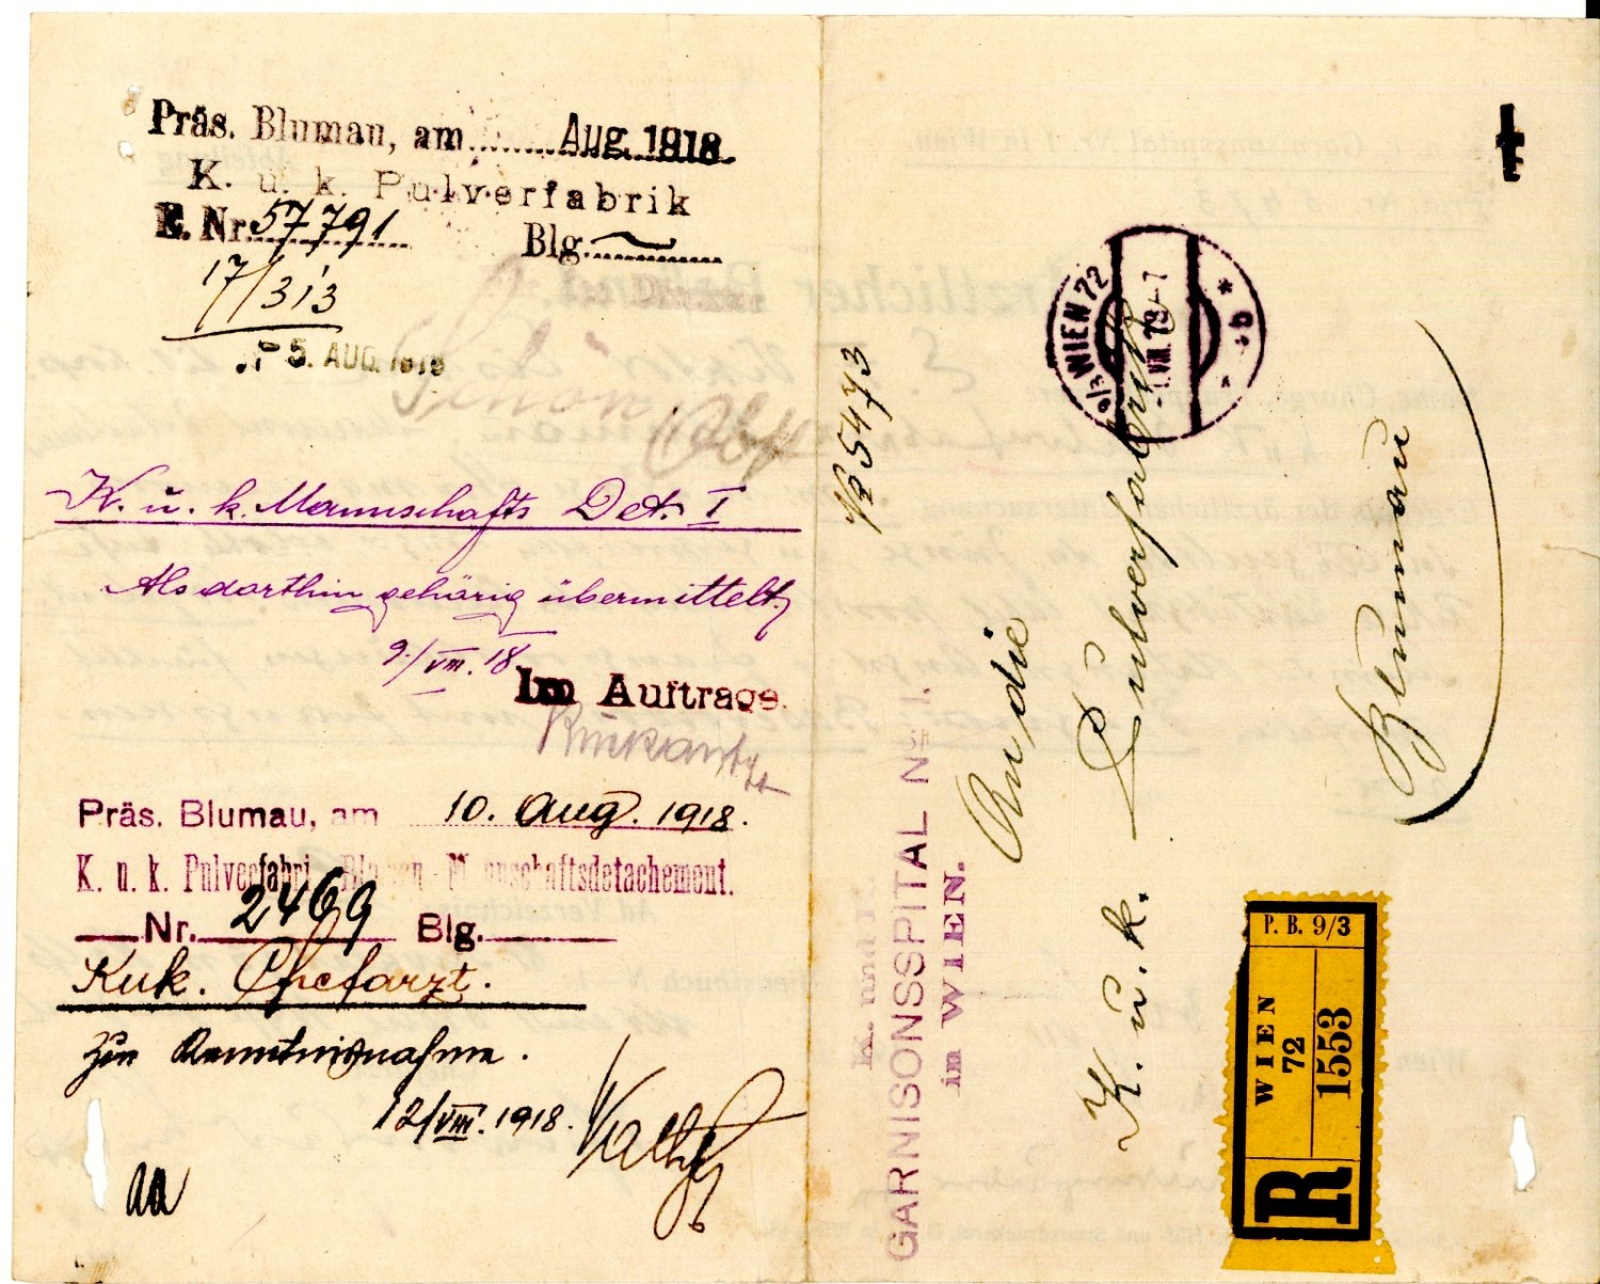 Präs. Blumau, am Aug. 1918
K. u. k. Pulverfabrik
E. Nr. 57791 Blg.
17/313
5. AUG. 1918
Schön
K. u. k. Mannschafts Det. I
Als dorthin gehörig übermittelt,
9./VIII. 18
Im Auftrage.
Präs. Blumau, am 10. Aug. 1918.
K. u. k. Pulverfabri Blumau - M nschaftsdetachement.
Nr. 2469 Blg.
Kuk. Chefarzt.
zur Kenntnisnahme.
12/VIII. 1918.
aa
№ 5473
K. und K.
GARNISONSSPITAL № 1.
in WIEN.
An die
K. u. k. Pulverfabrik
Blumau
9/3 WIEN 72
1. VIII. 18 - 7
* b *
P. B. 9/3
WIEN
72
1553
R